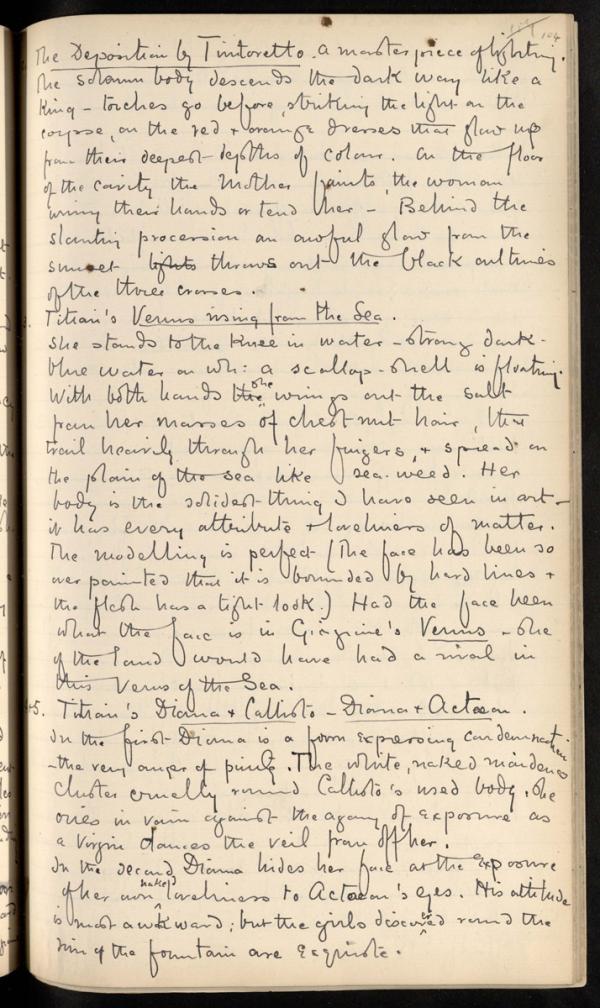 104
The Deposition by Tintoretto. a masterpiece of lighting.
The solemn body descends the dark way like a
King – torches go before, striking the light on the
corpse, on the red & orange dresses that glow up
from their deepest depths of colour. On the floor
of the cavity the Mother faints, the woman
wring their hands or tend her – Behind the
slanting procession an awful glow from the
sunset lights throws out the black outlines
of the three crosses.
Titian's Venus rising from the Sea.
She stands to the Knee in water – strong dark-
blue water on wh: a scallop-shell is floating.
With both hands the she wrings out the salt
from her masses of chestnut hair, that
trail heavily through her fingers, & spread on
the plain of the sea like sea-weed. Her
body is the solidest thing I have seen in art –
it has every attribute & loveliness of matter.
The modelling is perfect (The face has been so
over painted that it is bounded by hard lines &
the flesh has a tight look.) Had the face been
what the face is in Giorgione's Venus – she
of the land would have had a rival in
this Venus of the Sea.
45. Titian's Diana & Callisto – Diana & Actaeon.
In the first Diana is a form expressing condemnation
– the very anger of purity. The white, naked maidens
cluster cruelly round Callisto's used body. She
cries in vain against the agony of exposure as
a Virgin dances the veil from off her.
In the second Diana hides her face at the exposure
of her own naked loveliness to Actaeon's eyes. His attitude
is most awkward; but the girls discovered round the
rim of the fountain are exquisite.